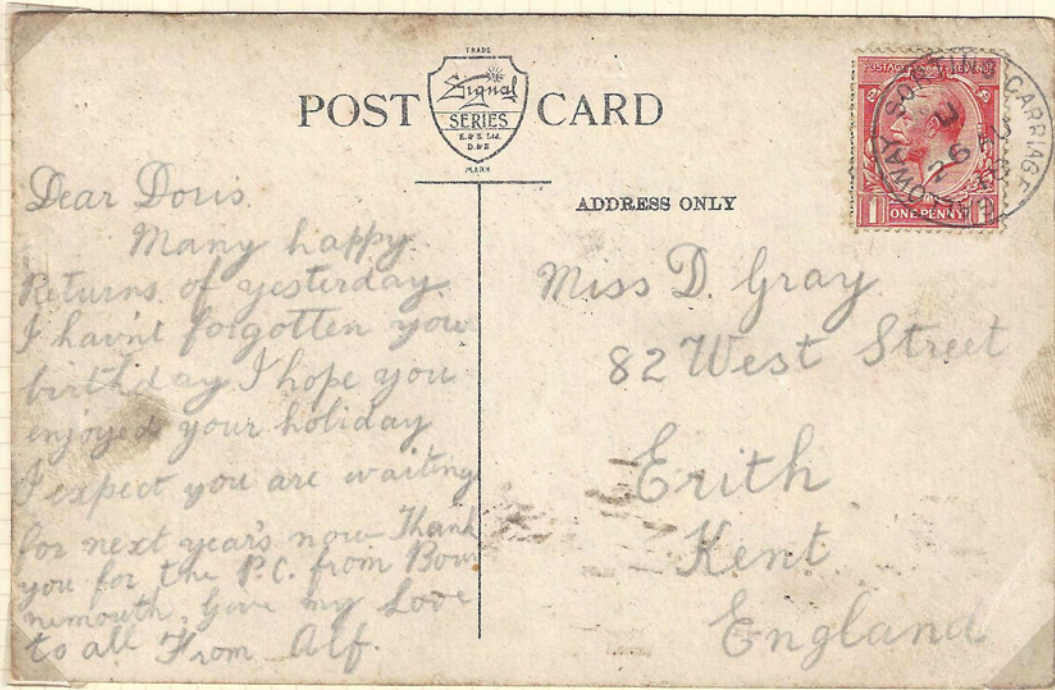 TRADE
Signal
SERIES
E. & S. Ltd.
D. & S
MARK
POST CARD
POSTAGE REVENUE
1 ONE PENNY 1
SORTING CARRIAGE
E
26
ADDRESS ONLY
Dear Doris.
Many happy
Returns of yesterday.
I hav'nt forgotten your
birthday I hope you
enjoyed your holiday
I expect you are waiting
for next year's now Thank
you for the P.C. from Bour
nemouth, Give my Love
to all From Alf.
Miss D. Gray
82 West Street
Erith
Kent
England